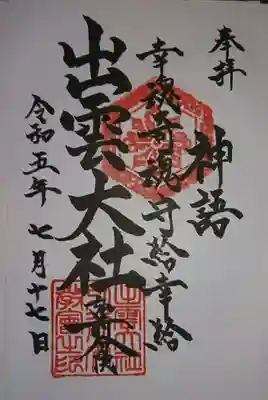 奉拝
神語
幸魂奇魂守給幸給
出雲大社
令和五年七月十七日